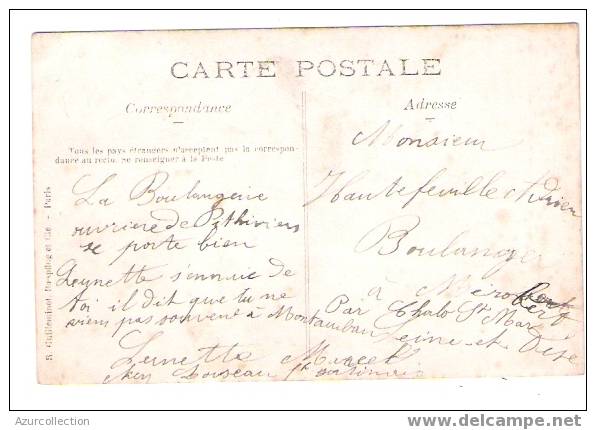 CARTE POSTALE
Correspondance
Adresse
Tous les pays étrangers n'acceptent pas la correspon-
dance au recto, se renseigner à la Poste
R. Guilleminot, Bœspflug et Cie. - Paris
La Boulangerie
ouvrière de Pithiviers
se porte bien
Lunette s'ennuie de
toi il dit que tu ne
viens pas souvent à Montauban
Lunette Marcel
Loiseau
Monsieur
Hautefeuille Adrien
Boulanger
à
Par Chalo St Mars
Seine-et-Oise
Azurcollection
www.delcampe.net